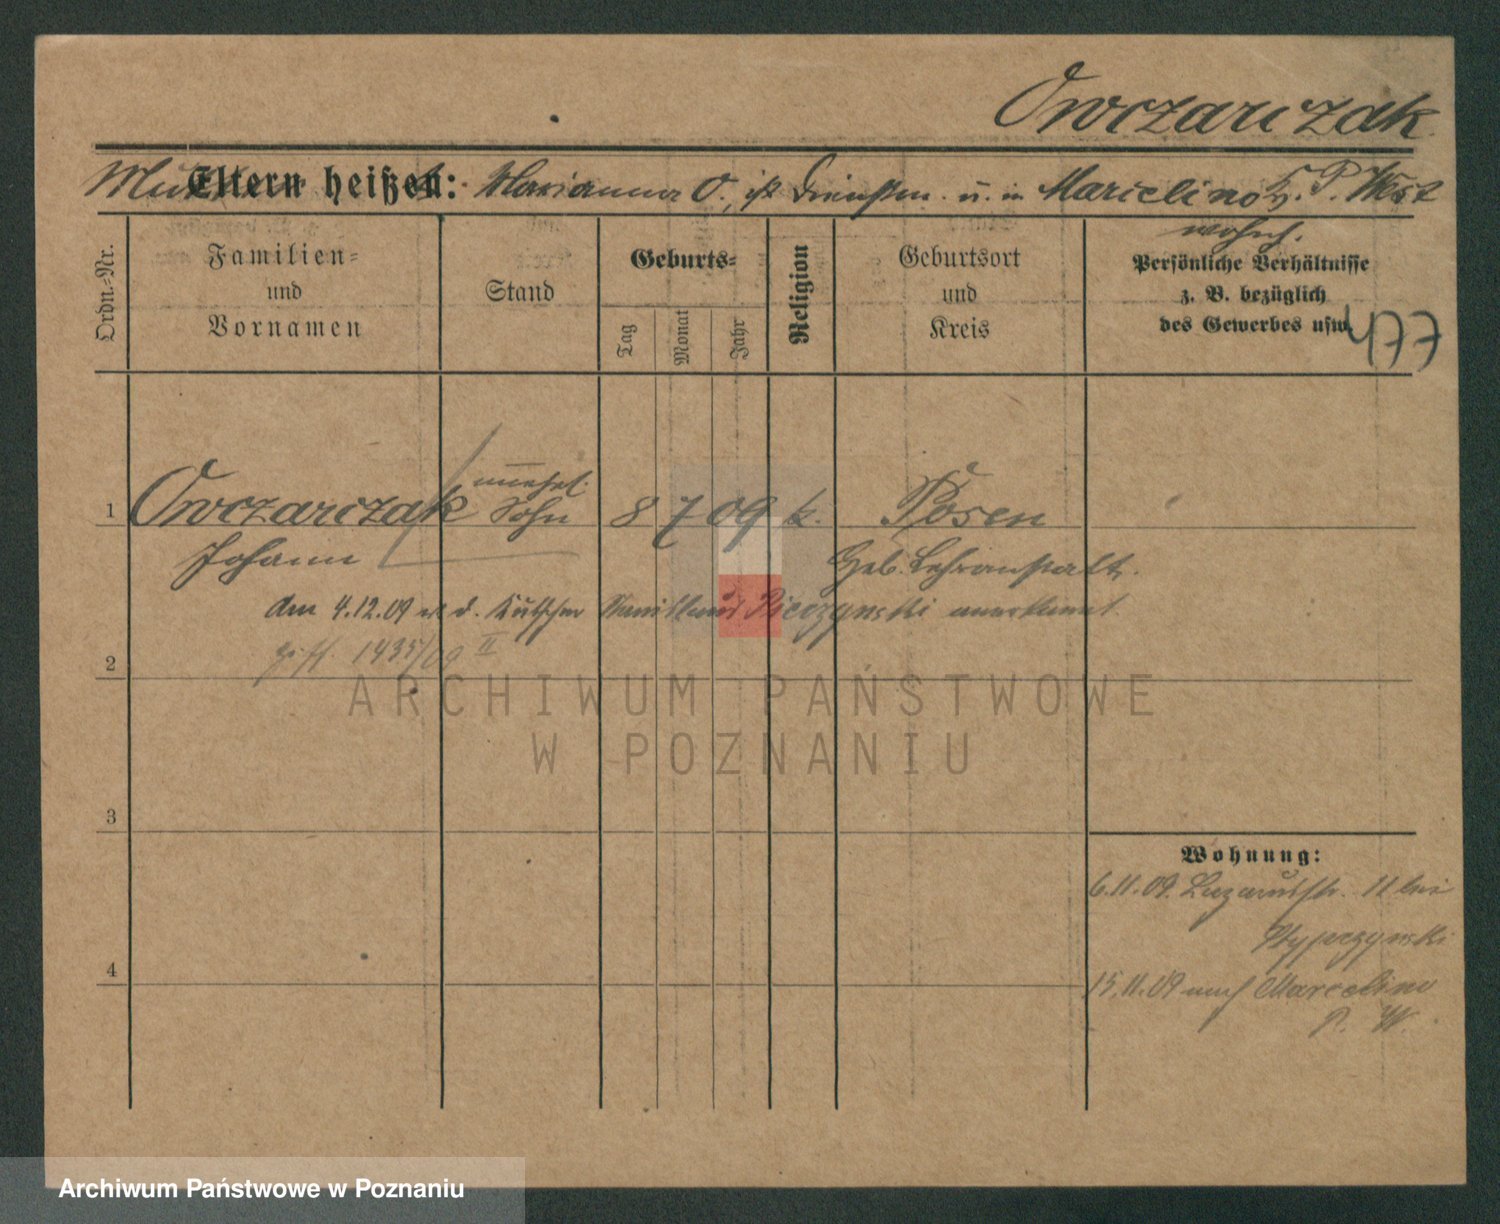 Owczarczak
Mutter Eltern heißen: Marianna O., ist Dienstm. u. in Marcelino b. P. West
wohnh.
Ordn.-Nr.
Familien-
und
Vornamen
Stand
Geburts-
Tag
Monat
Jahr
Religion
Geburtsort
und
Kreis
Persönliche Verhältnisse
z. B. bezüglich
des Gewerbes usw.
1 Owczarczak unehel. Sohn 8 7 09 k. Posen
Johann Geb. Lehranstalt.
den 4.12.09 v. d. Kutscher Stanislaus anerkannt.
1435/09 II
2
3
4
Wohnung:
6.11.09. Lazarusstr. 11 bei
15.11.09 nach Marcelino
P. W.
ARCHIWUM PAŃSTWOWE
W POZNANIU
Archiwum Państwowe w Poznaniu